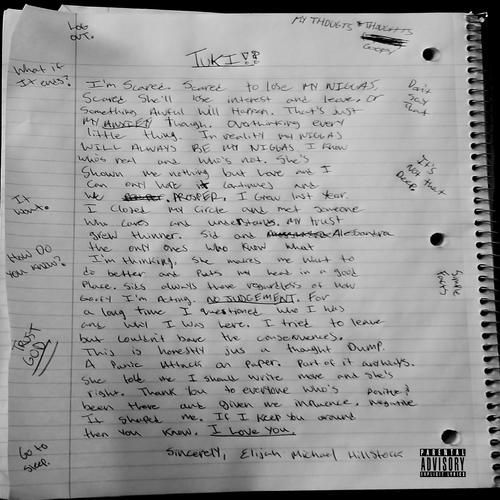 LOG
OUT.
MY THOUGTS & THOUGHTS
GOOFY
JUKI!!
What if
It ends?
I'm Scared. Scared to lose MY NIGGAS.
Scared She'll lose interest and leave, or
Something Awful Will Happen. That's Just
MY ANXIETY Though. Overthinking every
little thing. In reality MY NIGGAS
WILL ALWAYS BE MY NIGGAS I know
who's real and who's not. She's
Shown me nothing but Love and I
Can only hope it continues and
We PROSPER. I Grew last year.
I closed my circle and met someone
who cares and understands. My trust
grew thinner. Sid and Alessandra
the only ones who know what
I'm thinking. She makes me want to
do better and puts my head in a good
Place. Sids always there regardless of how
Goofy I'm Acting. NO JUDGEMENT. For
a long time I questioned who I was
and why I was here. I tried to leave
but couldn't bare the consequences.
This is honestly jus a thought Dump.
A Panic Attack on Paper. Part of it anyways.
She told me I should write more and she's
right. Thank You to everyone who's
been there and given me influence. Positive &
negative
It shaped me. If I keep you around
then you know. I Love You.
Sincerely, Elijah Michael Hillstock
Don't
Say
That
It's
Not that
Deep.
It
Wont.
How DO
You know?
Simple
TRUST
GOD
Go to
sleep.
PARENTAL
ADVISORY
EXPLICIT LYRICS